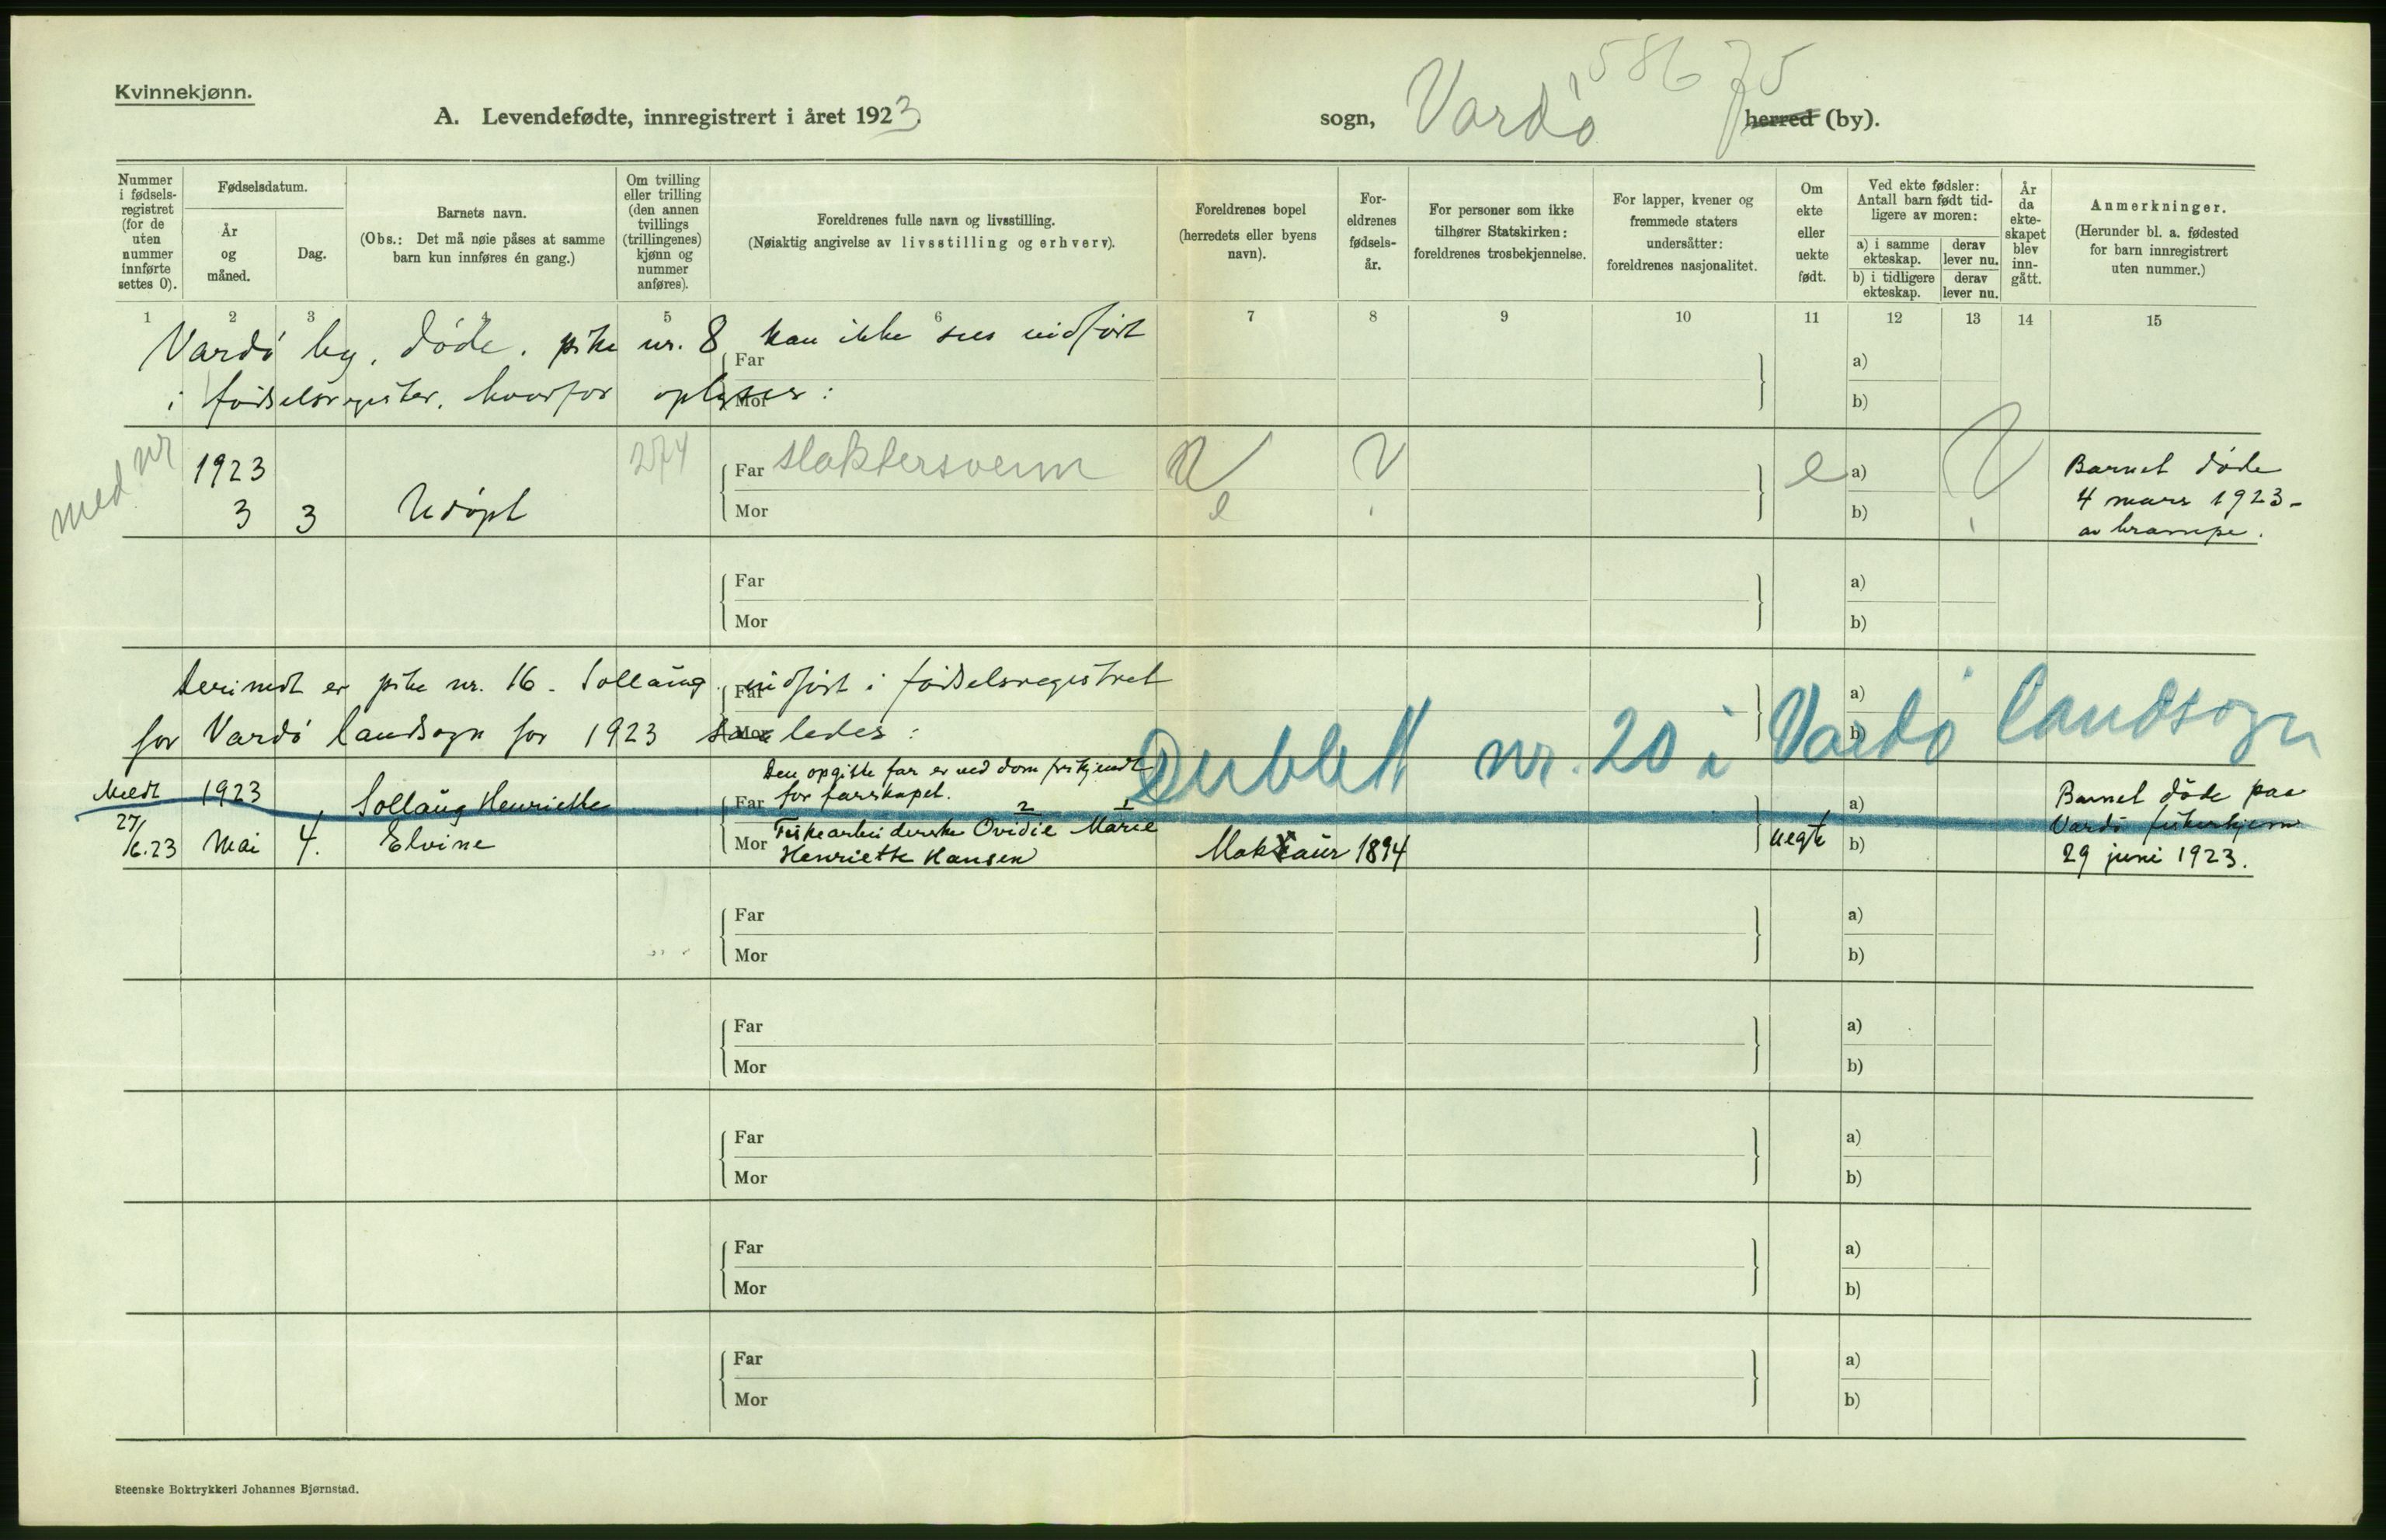 58675
Kvinnekjønn.
A. Levendefødte, innregistrert i året 1923.
sogn, Vardö herred (by).
Nummer i fødsels-registret (for de uten nummer innførte settes 0).
Fødselsdatum.
År og måned.
Dag.
Barnets navn.
(Obs.: Det må nøie påses at samme barn kun innføres én gang.)
Om tvilling eller trilling (den annen tvillings (trillingenes) kjønn og nummer anføres).
Foreldrenes fulle navn og livsstilling.
(Nøiaktig angivelse av livsstilling og erhverv).
Foreldrenes bopel (herredets eller byens navn).
For-eldrenes fødsels-år.
For personer som ikke tilhører Statskirken: foreldrenes trosbekjennelse.
For lapper, kvener og fremmede staters undersåtter: foreldrenes nasjonalitet.
Om ekte eller uekte født.
Ved ekte fødsler: Antall barn født tid-ligere av moren:
a) i samme ekteskap.
derav lever nu.
b) i tidligere ekteskap.
derav lever nu.
År da ekte-skapet blev inn-gått.
Anmerkninger.
(Herunder bl. a. fødested for barn innregistrert uten nummer.)
1 2 3 5 6 7 8 9 10 11 12 13 14 15
Vardö by. döde. pike nr. 8 kan ikke sees indfört
i födselsregister, hvorfor oplyses:
Far
Mor
a)
b)
med nr
1923
3 3 Udöpt
274
Far slaktersvenn
Mor
e
a)
b)
Barnet döde
4 mars 1923 -
av krampe.
Far
Mor
a)
b)
Derimot er pike nr. 16 - Sollaug. indfört i födselsregistret
for Vardö landsogn for 1923 saaledes:
Far
Mor
a)
b)
Dublett nr. 20 i Vardö landsogn
Meldt 27/6.23
1923 Mai 4.
Sollaug Henriette
Elvine
Den opgitte far er ved dom frikjendt
Far for farskapet.
2 1
Mor Fiskearbeiderske Ovidie Marie
Henriette Hansen
Makkaur 1894
uegte
a)
b)
Barnet döde paa
Vardö fiskerhjem
29 juni 1923.
Far
Mor
a)
b)
Far
Mor
a)
b)
Far
Mor
a)
b)
Far
Mor
a)
b)
Far
Mor
a)
b)
Steenske Boktrykkeri Johannes Bjørnstad.